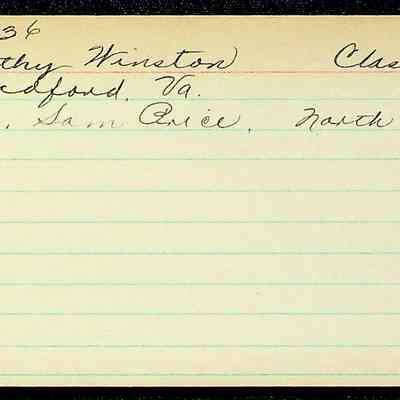 36
thy Winston Clas
dford, Va.
. Sam Price, North